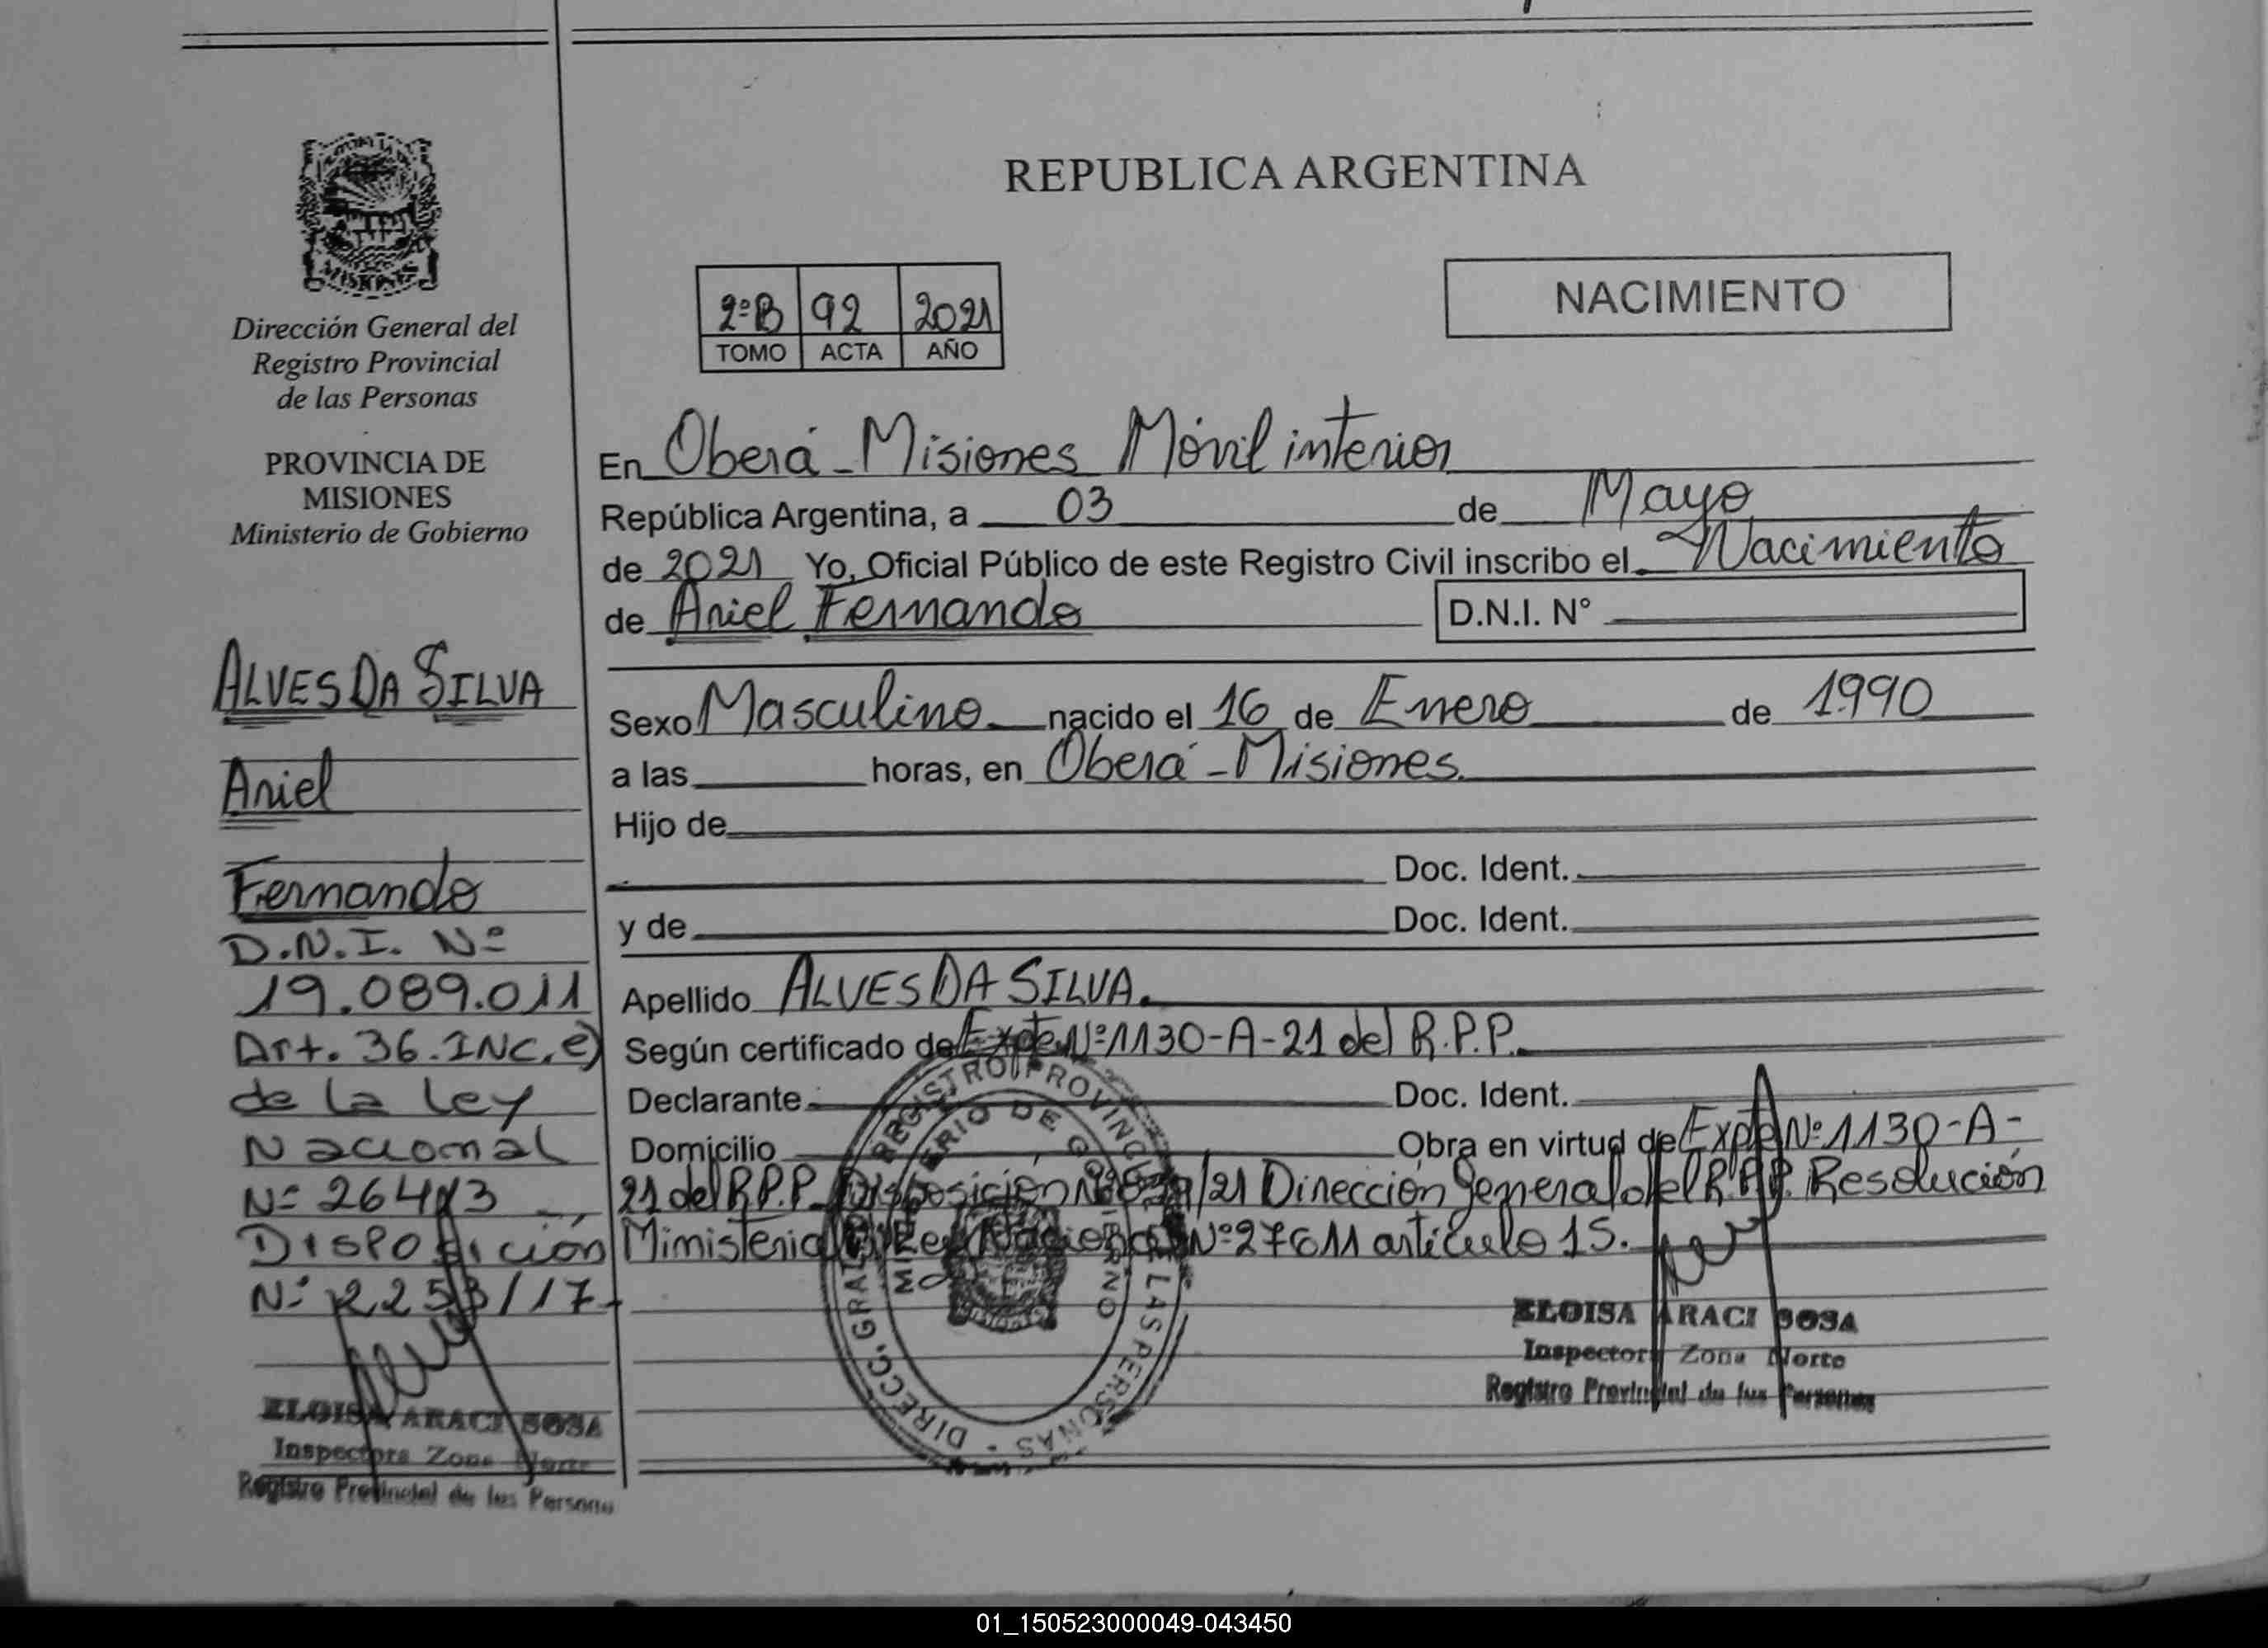 Dirección General del
Registro Provincial
de las Personas
PROVINCIA DE
MISIONES
Ministerio de Gobierno
ALVES DA SILVA
Ariel
Fernando
D.N.I. Nº
19.089.011
Art. 36. INC. e)
de la ley
Nacional
Nº 26413
Disposición
Nº 2253/17
ELOISA ARACI SOSA
Inspectora Zona Norte
Registro Provincial de las Persona
REPUBLICA ARGENTINA
2ºB 92 2021
TOMO ACTA AÑO
NACIMIENTO
En Oberá - Misiones Móvil interior
República Argentina, a 03 de Mayo
de 2021 Yo, Oficial Público de este Registro Civil inscribo el Nacimiento
de Ariel Fernando D.N.I. N°
Sexo Masculino nacido el 16 de Enero de 1990
a las horas, en Oberá - Misiones
Hijo de
Doc. Ident.
y de Doc. Ident.
Apellido ALVES DA SILVA.
Según certificado de Expte Nº 1130-A-21 del R.P.P.
Declarante Doc. Ident.
Domicilio Obra en virtud de Expte Nº 1130-A-
21 del R.P.P. Disposición /21 Dirección General del R.P.P. Resolución
Ministerial Nº 27611 artículo 15.
DIRECC. GRAL. REGISTRO PROVINCIAL DE LAS PERSONAS
MINISTERIO DE GOBIERNO
ELOISA ARACI SOSA
Inspectora Zona Norte
Registro Provincial de las Personas
01_150523000049-043450